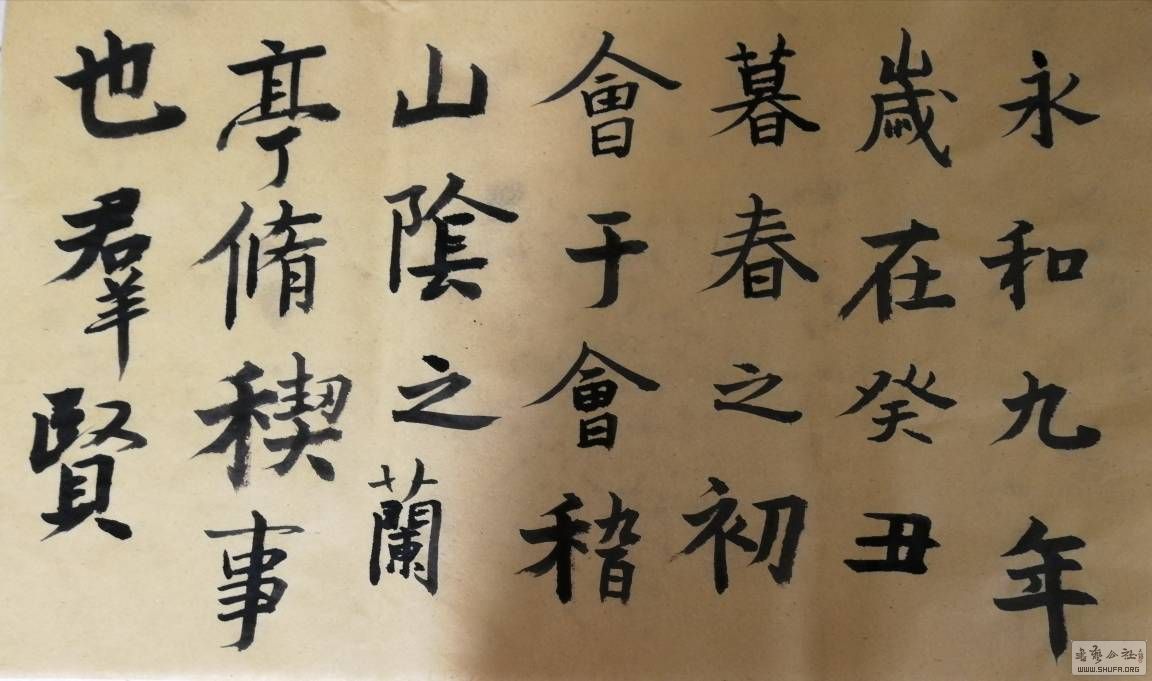 永和九年
歲在癸丑
暮春之初
會于會稽
山陰之蘭
亭脩稧事
也羣賢
書藝公社
WWW.SHUFA.ORG